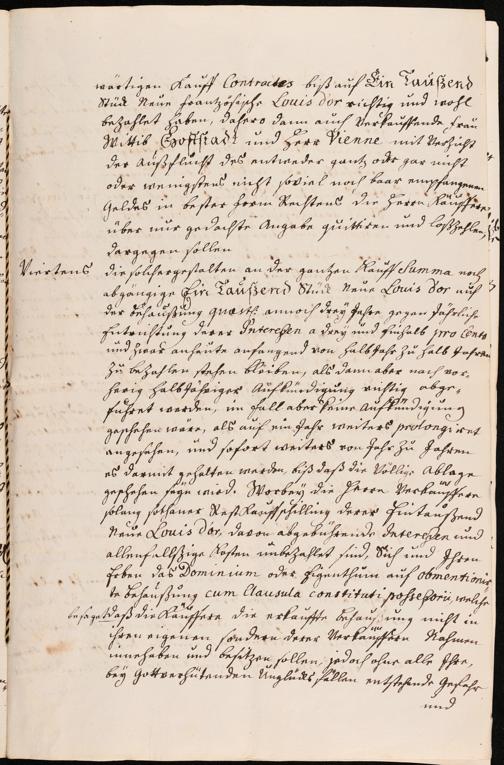 wärtigen Kauff Contractes biß auf Ein Taußend
Stück Neue frantzösische Louis d'or richtig und wohl
bezahlet haben, dahero dann auch Verkauffende Frau
Wittib Gottstadt und Herr Vienne mit Verzicht
der Außflucht des entweder gantz oder gar nicht
oder wenigstens nicht soviel noch baar empfangenen
Geldes in bester Form Rechtens die Herrn Käuffere
über nur gedachte Angabe quittiren und loßzehlen,
dargegen sollen
Viertens die solchergestalten an der gantzen Kauff Summa noch
abgängige Ein Taußend Stück Neue Louis d'or auf
der Behaussung quaest. annoch drey Jahre gegen Jährliche
Entrichtung derer Interessen a drey und einhalb pro Cento
und zwar anheute anfangend von halb Jahr zu halb Jahren
zu bezahlen stehen bleiben, als dann aber nach vor-
herig halbjähriger Aufkündigung richtig abge-
führet werden, im fall aber keine Aufkündigung
geschehen wäre, als auf ein Jahr weiters prolongiret
angesehen, und sofort weiters von Jahr zu Jahren
es darmit gehalten werden, biß daß die Völlige Ablage
geschehen seyn wird. Worbey die Herrn Verkauffere
solang sothaner Rest Kauffschilling derer Eintaußend
Neue Louis d'or, davon abgebührende Interessen und
allenfallßige Kosten unbezahlet sind, Sich und Ihren
Erben das Dominium oder Eigenthum auf obmentionir-
te Behaussung cum Clausula constituti possessorii, welche
besaget daß die Käuffere die erkauffte Behaussung nicht in
ihren eigenen sondern derer Verkäuffern Nahmen
innehaben und besitzen sollen, jedoch ohne alle Ihre,
bey Gott verhütenden Unglücks fällen entstehende Gefahr
und